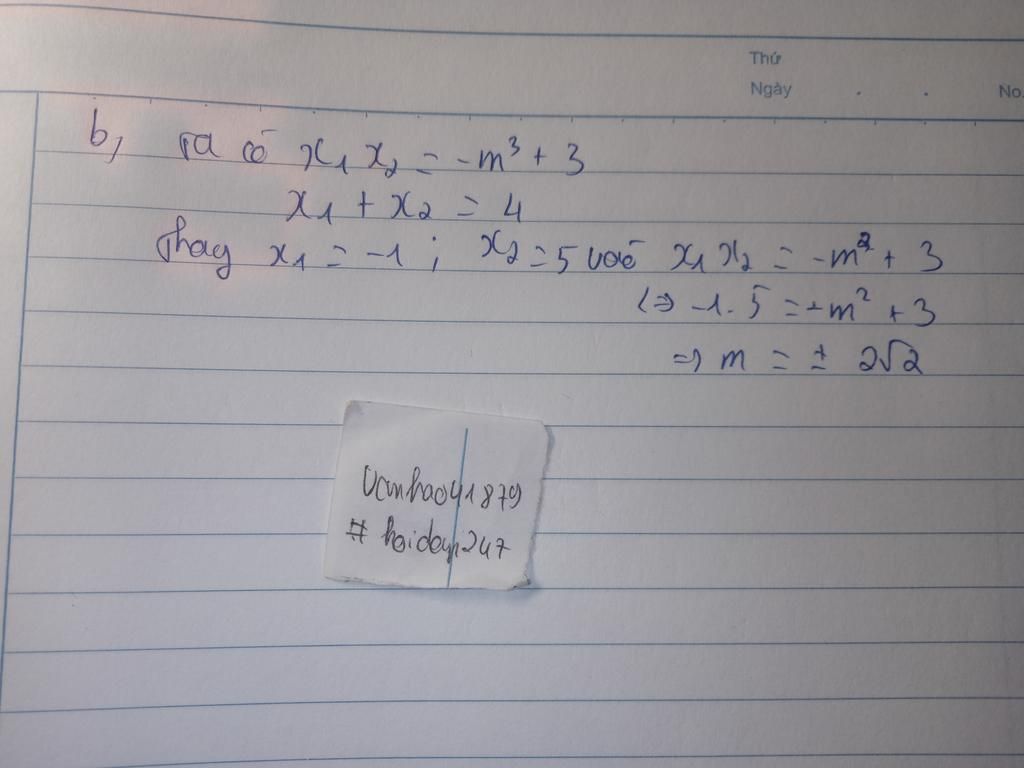 Thứ
Ngày . . No.
b, Ta có x₁ x₂ = -m³ + 3
x₁ + x₂ = 4
Thay x₁ = -1 ; x₂ = 5 vào x₁ x₂ = -m² + 3
(=> -1. 5 = -m² + 3
=> m = ± 2√2
Vanhao41879
# hoidap247